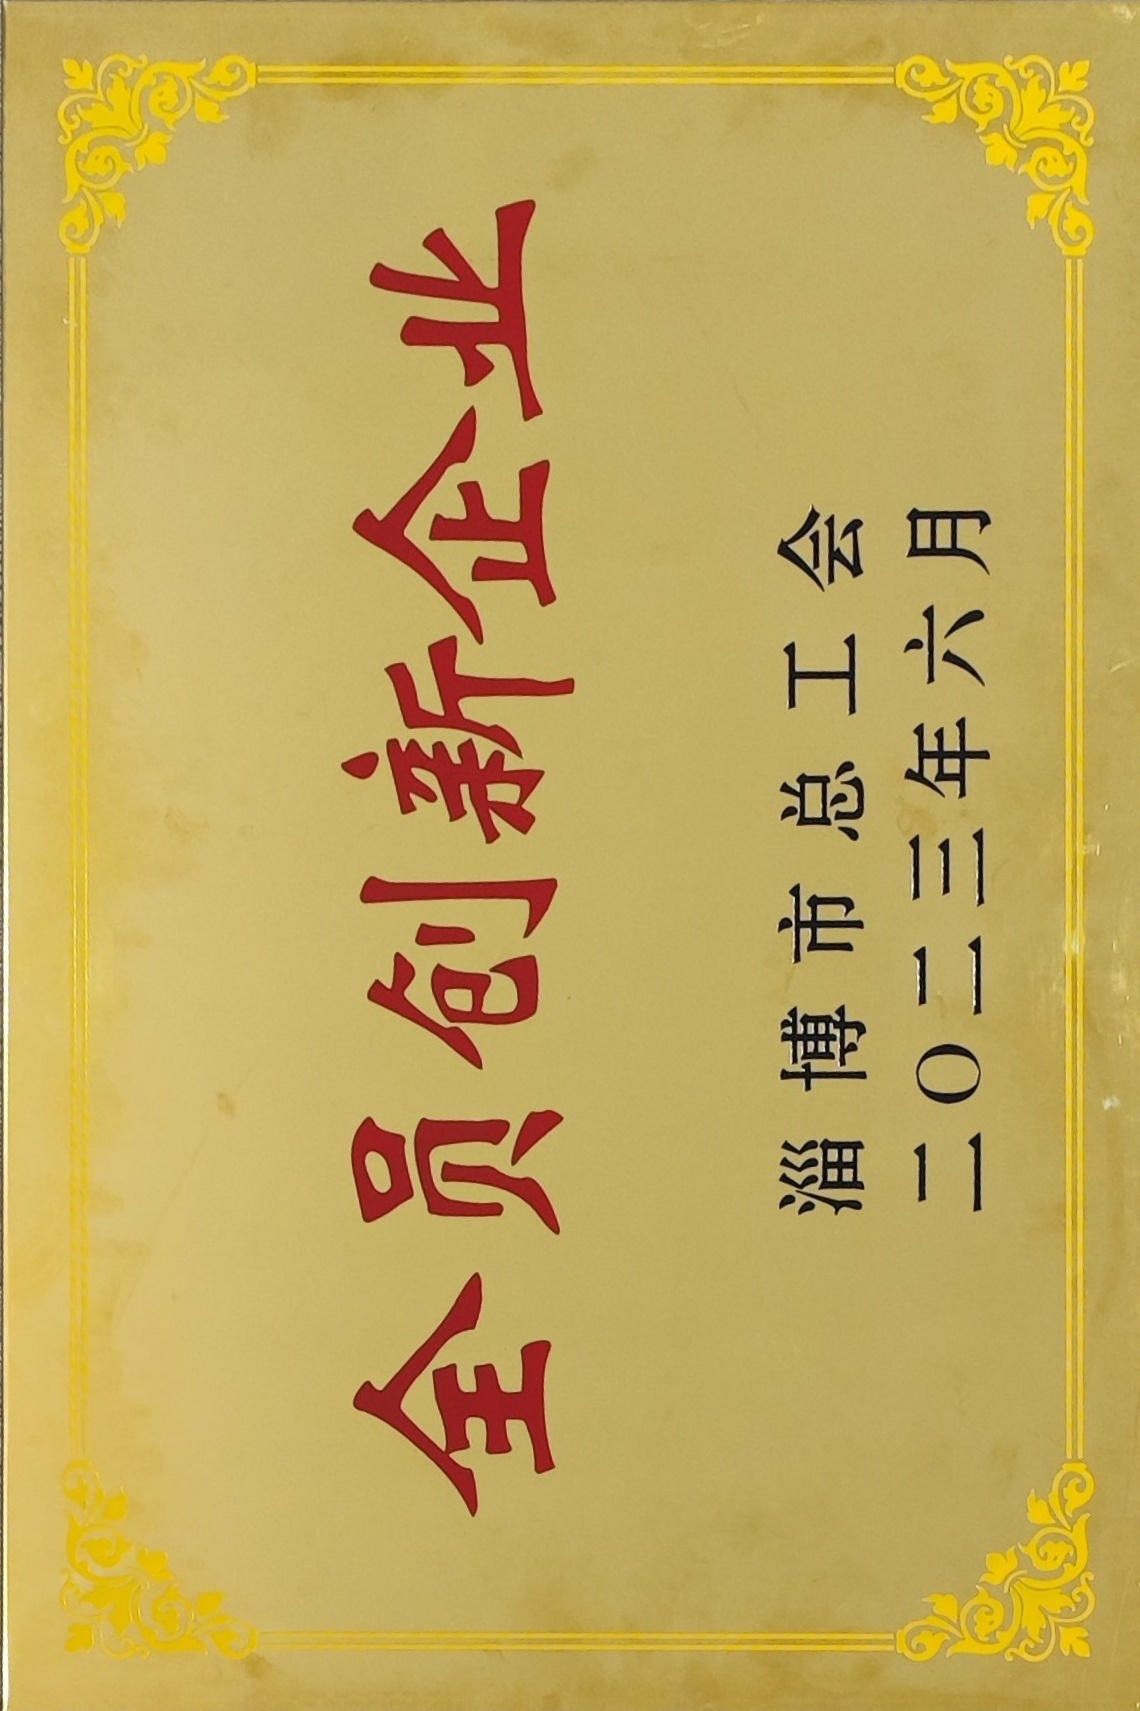 全员创新企业
淄博市总工会
二〇二三年六月